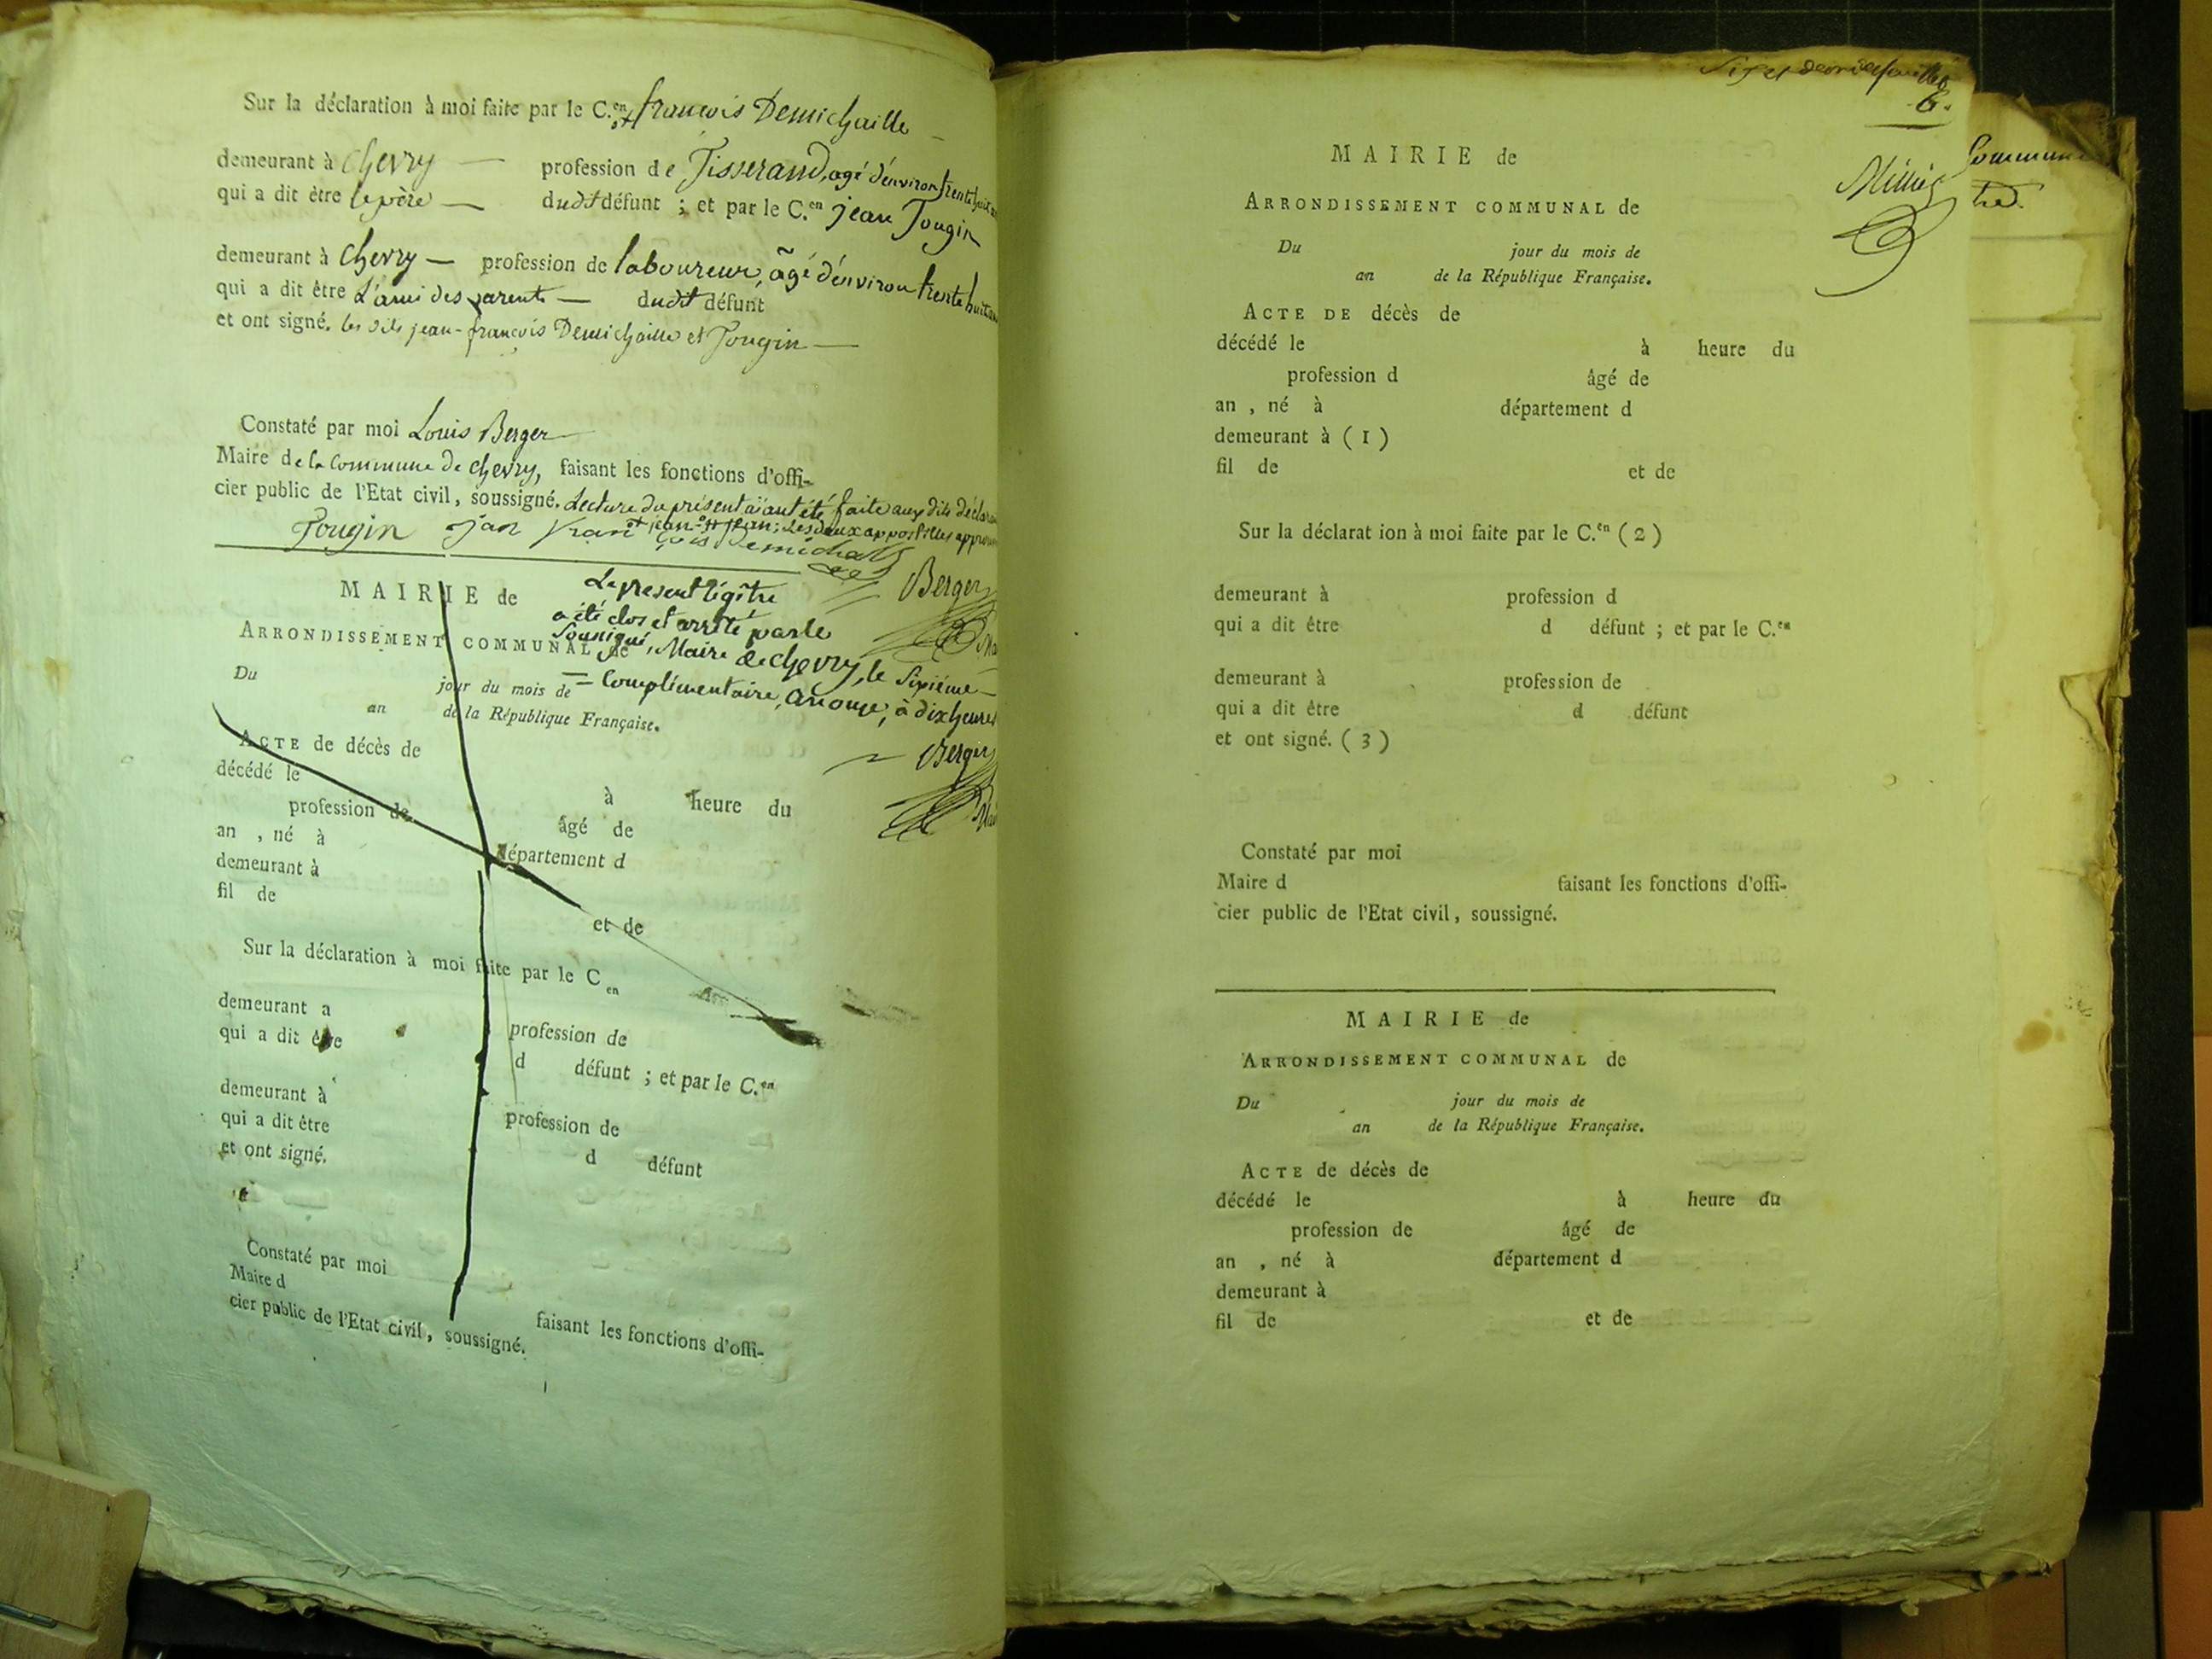 Sur la déclaration à moi faite par le C.en françois Demichaille
demeurant à Chevry — profession de Tisserand, agé d'environ trente huit
qui a dit être le père — dudit défunt ; et par le C.en jean Fougin
demeurant à Chevry — profession de laboureur, âgé d'environ trente huit ans
qui a dit être L'ami des parents — dudit défunt
et ont signé. les dits jean-françois Demichaille et Fougin —
Constaté par moi Louis Berger
Maire de la Commune de chevry, faisant les fonctions d'offi-
cier public de l'Etat civil, soussigné. Lecture du présent aiant été faite aux dits
jean ; Les deux appostilles
Fougin jan
Berger
MAIRIE de
Le présent
a été clos et arrêté par le
ARRONDISSEMENT COMMUNAL de
Maire de Chevry, le Sixième
Du jour du mois de
= Complimentaire, an onze, à dix heures
an de la République Française.
Berger
ACTE de décès de
décédé le à heure du
profession de âgé de
an , né à département d
demeurant à
fil de et de
Sur la déclaration à moi faite par le C en
demeurant a profession de
qui a dit être d défunt ; et par le C.en
demeurant à profession de
qui a dit être d défunt
et ont signé.
Constaté par moi
Maire d faisant les fonctions d'offi-
cier public de l'Etat civil, soussigné.
6.
MAIRIE de
ARRONDISSEMENT COMMUNAL de
Du jour du mois de
an de la République Française.
ACTE DE décès de
décédé le à heure du
profession d âgé de
an , né à département d
demeurant à ( 1 )
fil de et de
Sur la déclarat ion à moi faite par le C.en ( 2 )
demeurant à profession d
qui a dit être d défunt ; et par le C.en
demeurant à profession de
qui a dit être d défunt
et ont signé. ( 3 )
Constaté par moi
Maire d faisant les fonctions d'offi-
cier public de l'Etat civil, soussigné.
MAIRIE de
ARRONDISSEMENT COMMUNAL de
Du jour du mois de
an de la République Française.
ACTE de décès de
décédé le à heure du
profession de âgé de
an , né à département d
demeurant à
fil de et de